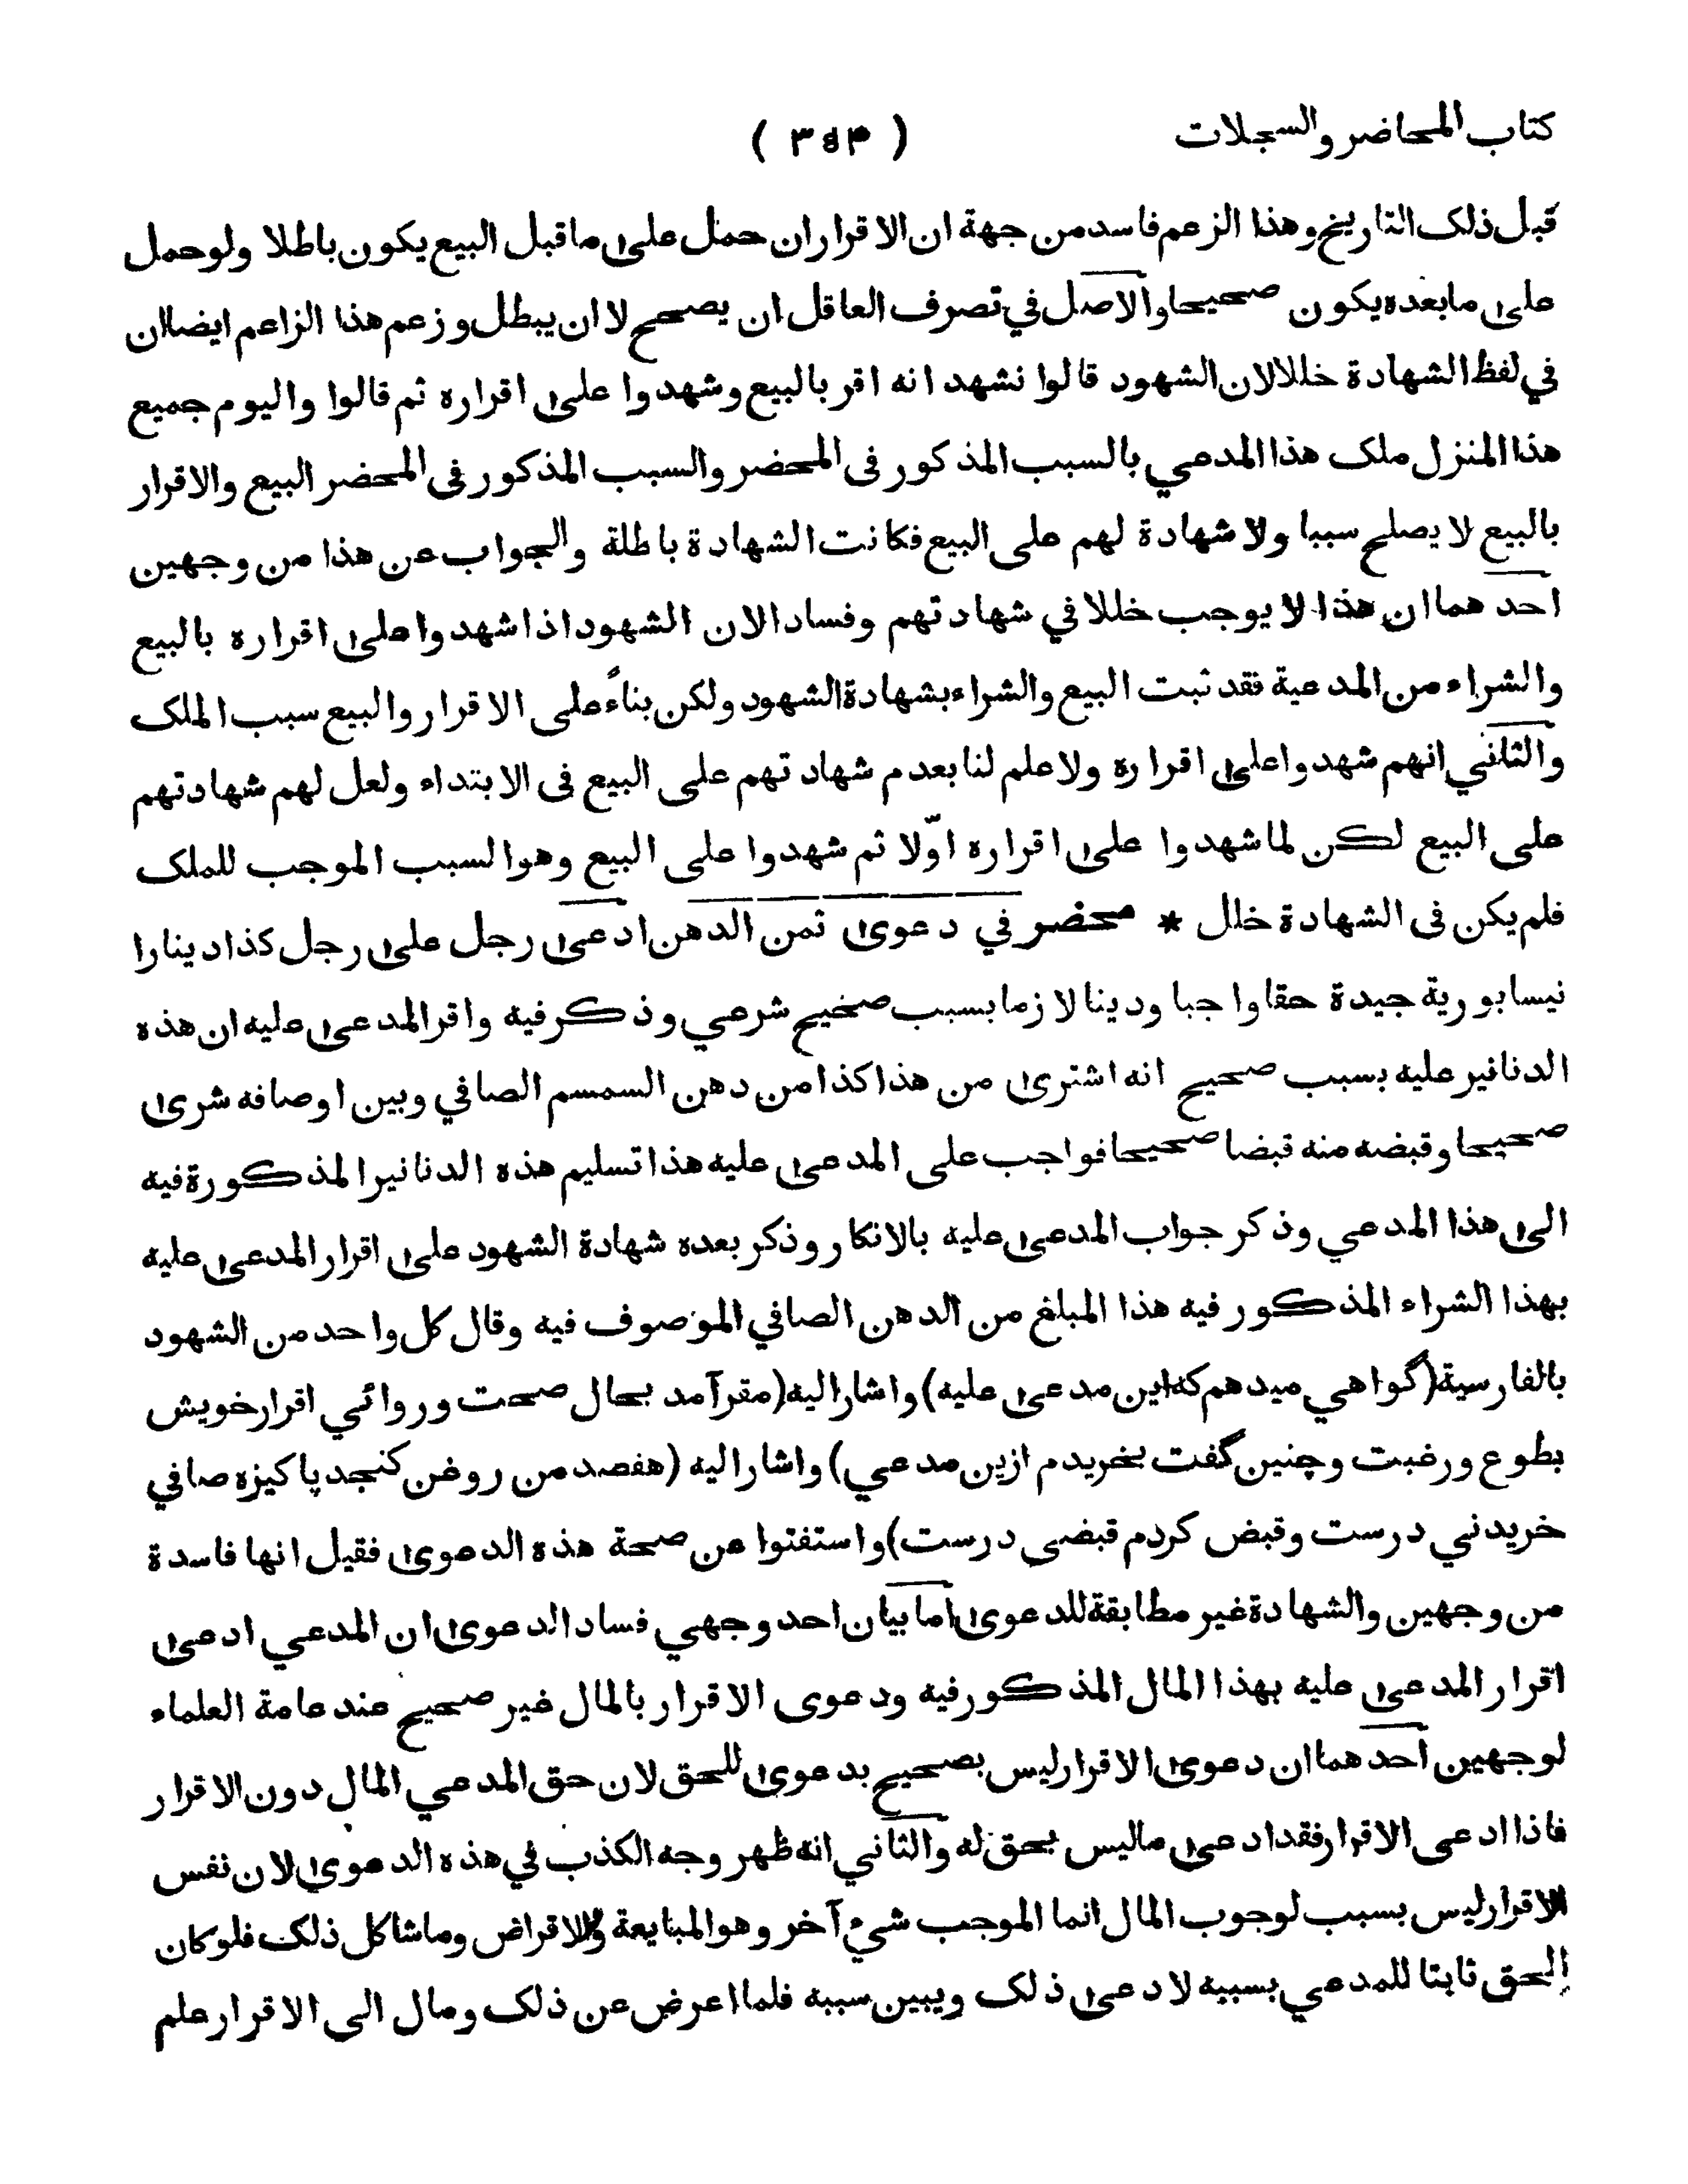 كتاب المحاضر والسجلات ( ٣٥٣ )
قبل ذلك التاريخ وهذا الزعم فاسد من جهة ان الاقرار ان حمل على ما قبل البيع يكون باطلا ولو حمل
على ما بعده يكون صحيحا والاصل في تصرف العاقل ان يصحح لا ان يبطل وزعم هذا الزاعم ايضا ان
في لفظ الشهادة خللا لان الشهود قالوا نشهد انه اقر بالبيع وشهدوا على اقراره ثم قالوا واليوم جميع
هذا المنزل ملك هذا المدعي بالسبب المذكور فى المحضر والسبب المذكور فى المحضر البيع والاقرار
بالبيع لا يصلح سببا ولا شهادة لهم على البيع فكانت الشهادة باطلة والجواب عن هذا من وجهين
احدهما ان هذا لا يوجب خللا في شهادتهم وفسادا لان الشهود اذا شهدوا على اقراره بالبيع
والشراء من المدعية فقد ثبت البيع والشراء بشهادة الشهود ولكن بناءً على الاقرار والبيع سبب الملك
والثاني انهم شهدوا على اقراره ولا علم لنا بعدم شهادتهم على البيع فى الابتداء ولعل لهم شهادتهم
على البيع لكن لما شهدوا على اقراره اوّلا ثم شهدوا على البيع وهو السبب الموجب للملك
فلم يكن فى الشهادة خلل * محضر في دعوى ثمن الدهن ادعى رجل على رجل كذا دينارا
نيسابورية جيدة حقا واجبا ودينا لازما بسبب صحيح شرعي وذكر فيه واقر المدعى عليه ان هذه
الدنانير عليه بسبب صحيح انه اشترى من هذا كذا من دهن السمسم الصافي وبين اوصافه شرى
صحيحا وقبضه منه قبضا صحيحا فواجب على المدعى عليه هذا تسليم هذه الدنانير المذكورة فيه
الى هذا المدعي وذكر جواب المدعى عليه بالانكار وذكر بعده شهادة الشهود على اقرار المدعى عليه
بهذا الشراء المذكور فيه هذا المبلغ من الدهن الصافي الموصوف فيه وقال كل واحد من الشهود
بالفارسية (گواهي ميدهم كه اين مدعى عليه) واشار اليه (مقرآمد بحال صحت وروائي اقرار خويش
بطوع ورغبت وچنين گفت بخريدم ازين مدعي) واشار اليه (هفصد من روغن كنجد پاكيزه صافي
خريدني درست وقبض كردم قبضى درست) واستفتوا عن صحة هذه الدعوى فقيل انها فاسدة
من وجهين والشهادة غير مطابقة للدعوى اما بيان احد وجهي فساد الدعوى ان المدعي ادعى
اقرار المدعى عليه بهذا المال المذكور فيه ودعوى الاقرار بالمال غير صحيح عند عامة العلماء
لوجهين احدهما ان دعوى الاقرار ليس بصحيح بدعوى للحق لان حق المدعي المال دون الاقرار
فاذا ادعى الاقرار فقد ادعى ما ليس بحق له والثاني انه ظهر وجه الكذب في هذه الدعوى لان نفس
الاقرار ليس بسبب لوجوب المال انما الموجب شيء آخر وهو المبايعة والاقراض وما شاكل ذلك فلو كان
الحق ثابتا للمدعي بسببه لادعى ذلك ويبين سببه فلما اعرض عن ذلك ومال الى الاقرار علم